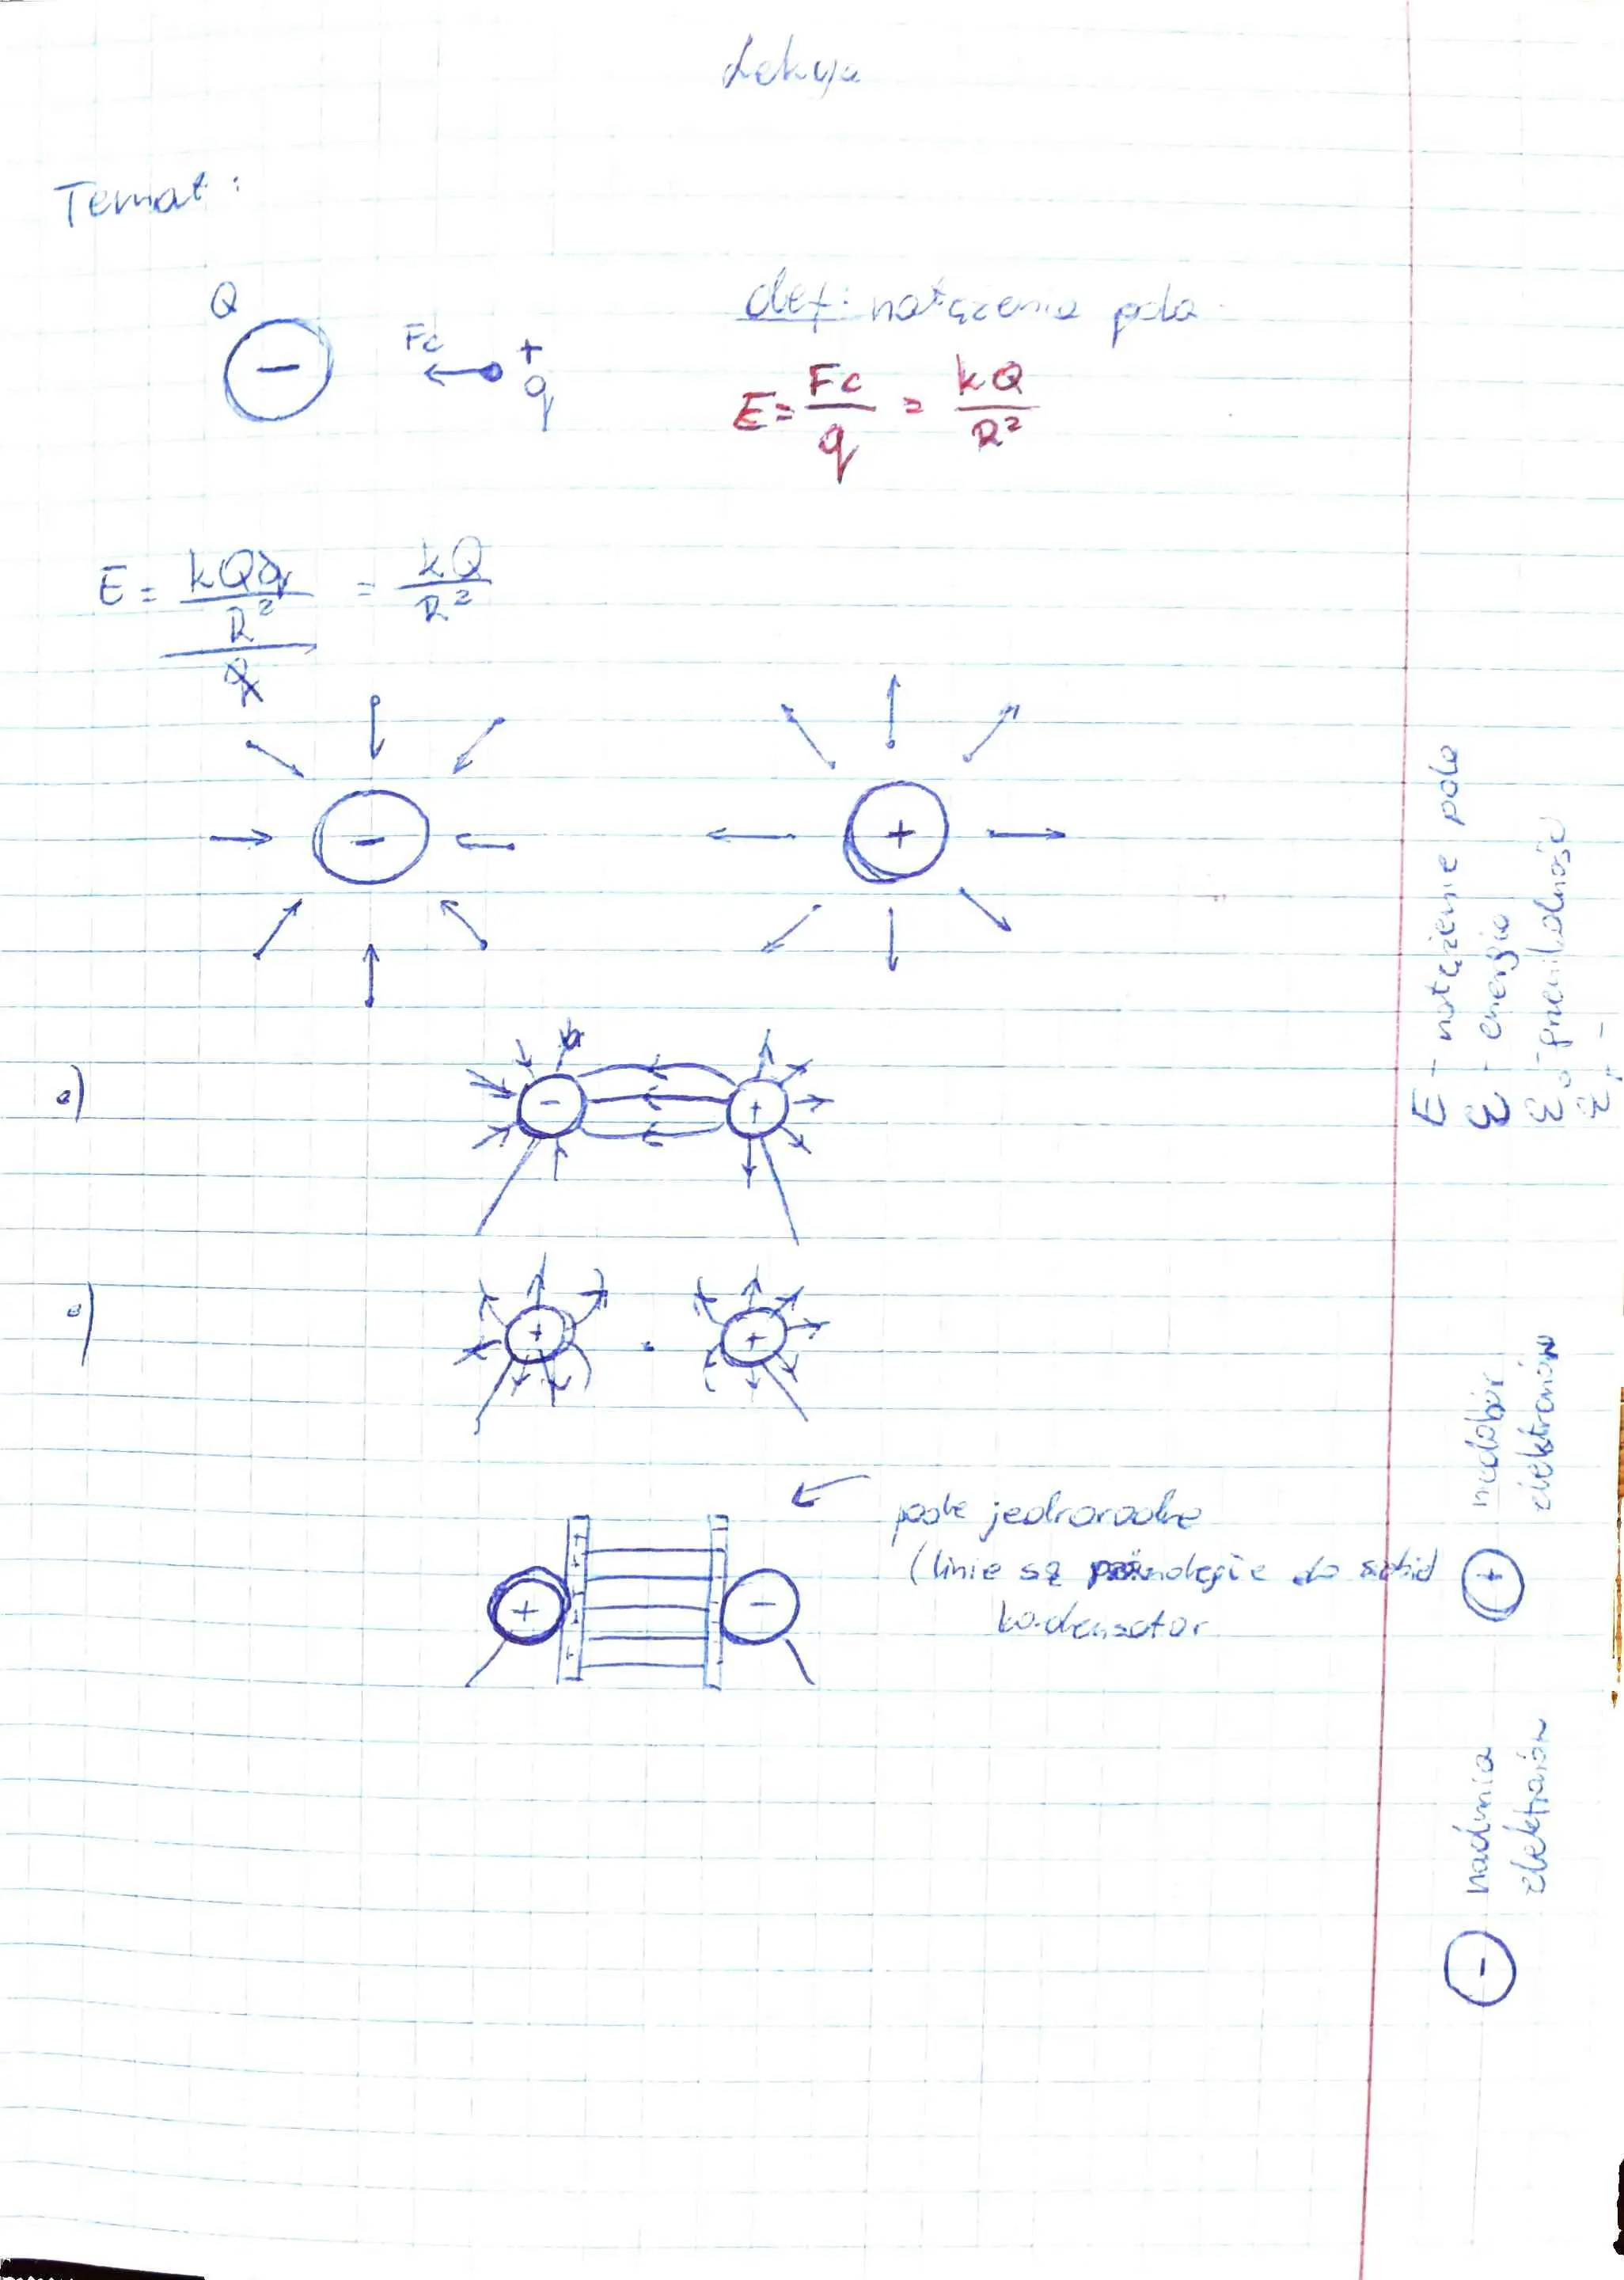 Lekcja
Temat:
Q
-
Fc
+
q
def: natężenia pola
E = Fc/q = kQ/R²
E = kQq/R²/q = kQ/R²
-
+
a)
-
+
+
+
pole jednorodne
(linie są równoległe do siebie)
kondensator
+
-
E - natężenie pola
ℰ - energia
ℰ₀ - przenikalność
ℰᵣ -
+ niedobór
elektronów
- nadmia
elektronów